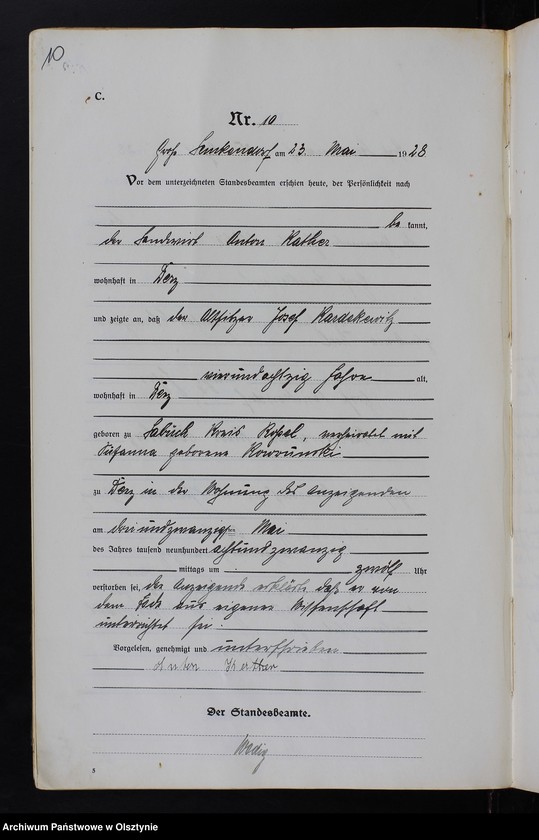 10
C.
Nr. 10
Groß Lemkendorf am 23. Mai 1928
Vor dem unterzeichneten Standesbeamten erschien heute, der Persönlichkeit nach
be kannt,
der Landwirt Anton Kather
wohnhaft in Derz
und zeigte an, daß der Altsitzer Josef
vierundachtzig Jahre alt,
wohnhaft in Derz
geboren zu Kreis Rössel, verheiratet mit
Susanna geborene
zu Derz in der Wohnung des Anzeigenden
am dreiundzwanzigsten Mai
des Jahres tausend neunhundert achtundzwanzig
mittags um zwölf Uhr
verstorben sei, der Anzeigende erklärte daß er von
dem Tode aus eigener Wissenschaft
unterrichtet sei.
Vorgelesen, genehmigt und unterschrieben
Anton Kather
Der Standesbeamte.
5
Archiwum Państwowe w Olsztynie